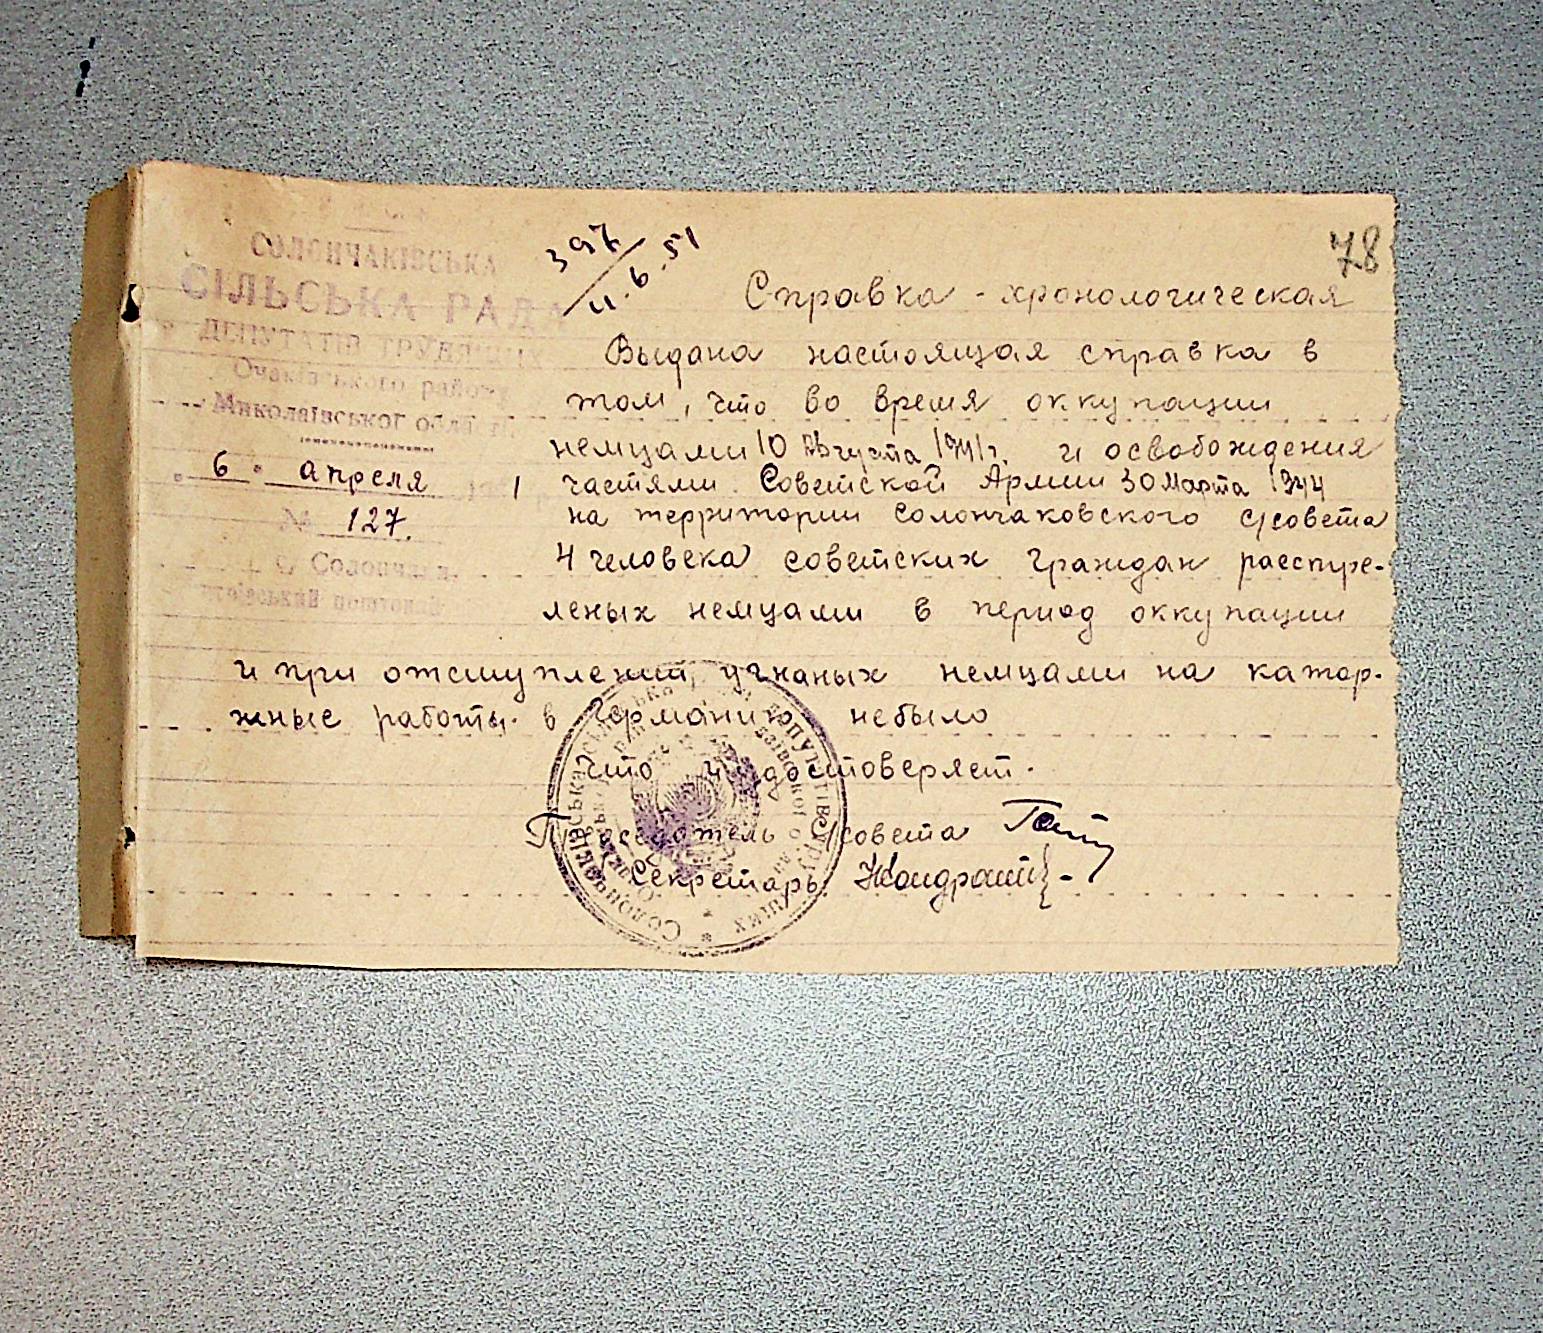 СОЛОНЧАКІВСЬКА
СІЛЬСЬКА РАДА
ДЕПУТАТІВ ТРУДЯЩИХ
Очаківського району
Миколаївської області
6 апреля 1951 р.
№ 127.
с. Солончаки
поштовий
397
11.6.51
78
Справка - хронологическая
Выдана настоящая справка в
том, что во время оккупации
немцами 10 Августа 1941 г. и освобождения
частями Советской Армии 30 Марта 1944
на территории Солончаковского с/совета
4 человека советских граждан расстре-
леных немцами в период оккупации
и при отступлении, угнаных немцами на катор-
жные работы в Германию небыло
Что и удостоверяет.
Председатель с/совета
Секретарь